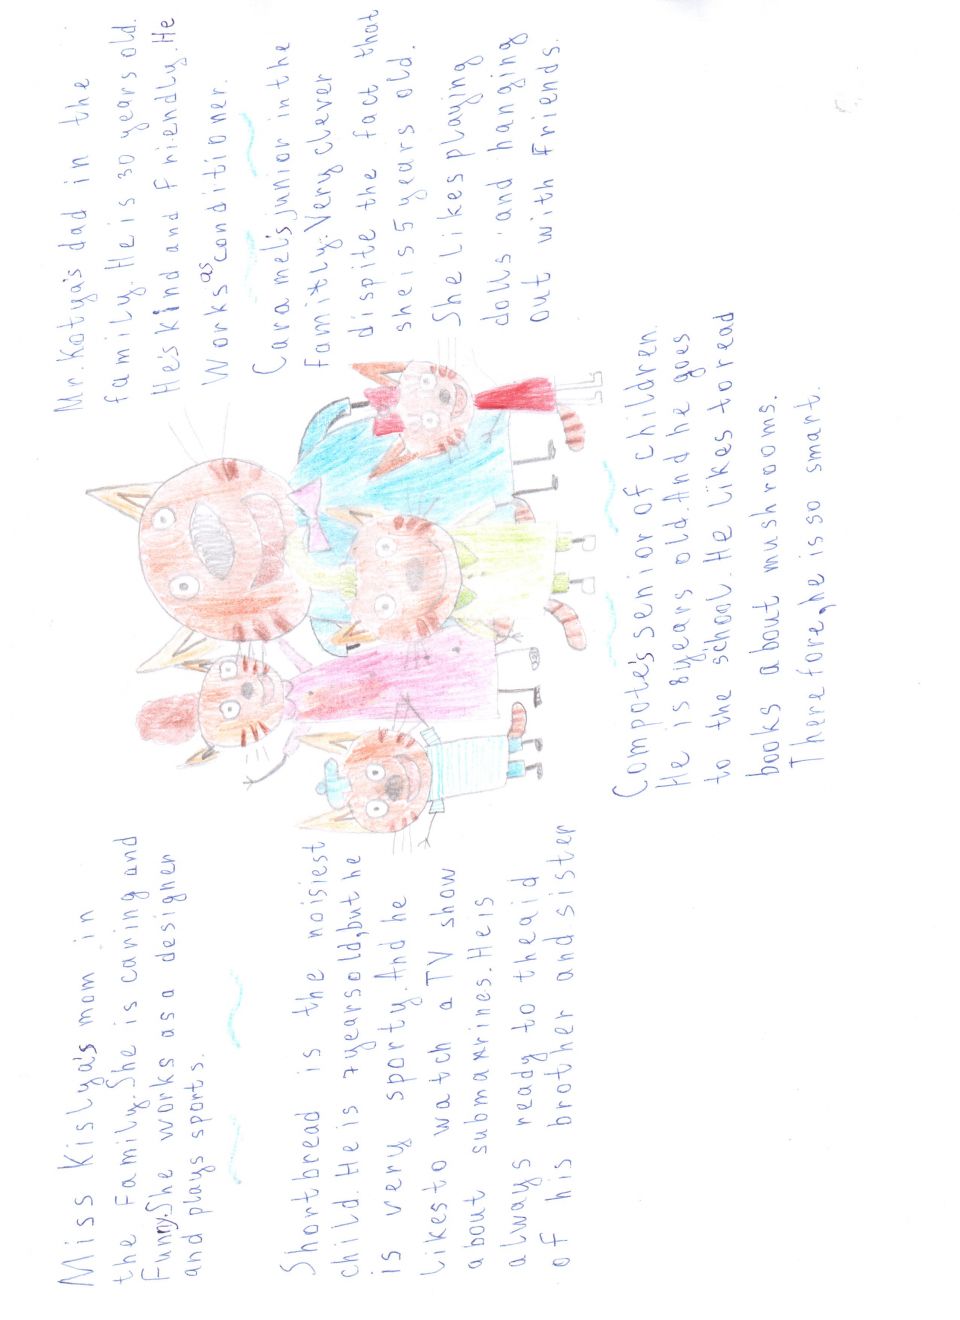 Miss Kislya's mom in
the family. She is caring and
Funny. She works as a designer
and plays sports.
Shortbread is the noisiest
child. He is 7 years old, but he
is very sporty. And he
likes to watch a TV show
about submarines. He is
always ready to the aid
of his brother and sister
Mr. Kotya's dad in the
family. He is 30 years old.
He's kind and friendly. He
works as conditioner.
Caramel's junior in the
family. Very clever
dispite the fact that
she is 5 years old.
She likes playing
dolls and hanging
out with friends.
Compote's senior of children.
He is 8 years old. And he goes
to the school. He likes to read
books about mushrooms.
Therefore, he is so smart.